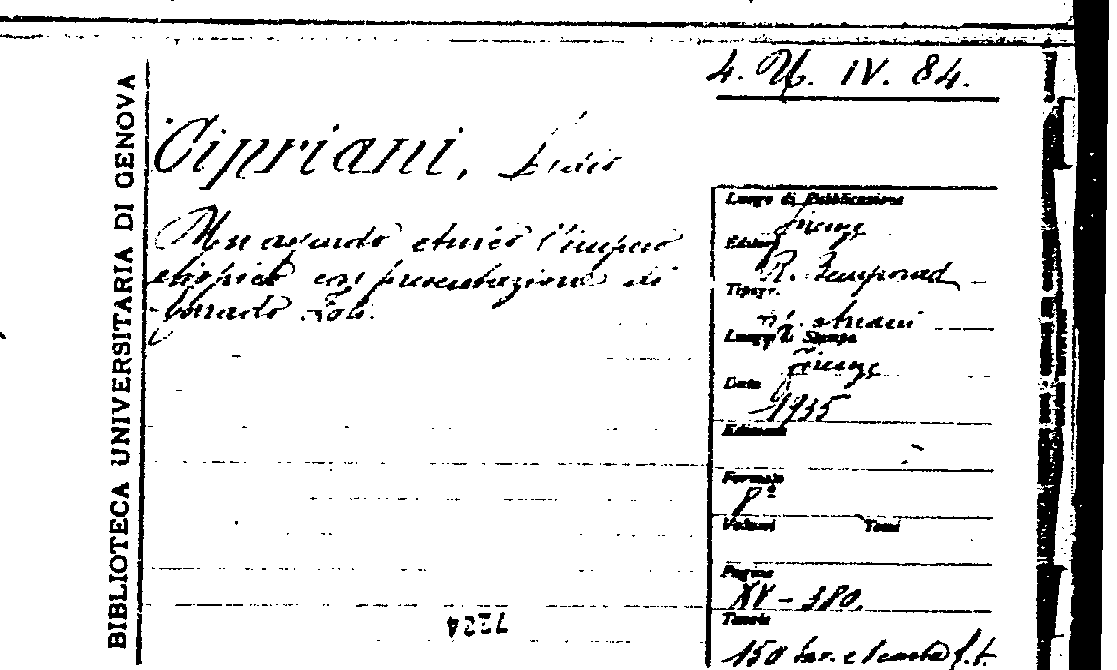 BIBLIOTECA UNIVERSITARIA DI GENOVA
4. IV. 84.
Cipriani, Lidio
etnico l'impero
etiopico con presentazione di
Corrado Zoli.
Luogo di Pubblicazione
Firenze
Editore
R. Bemporad
Tipogr.
Luogo di Stampa
Firenze
Data
1935
Edizione
Formato
8º
Volumi Tomi
Pagine
XV - 380.
Tavole
150 tav. e 1 carta f. t.
7224